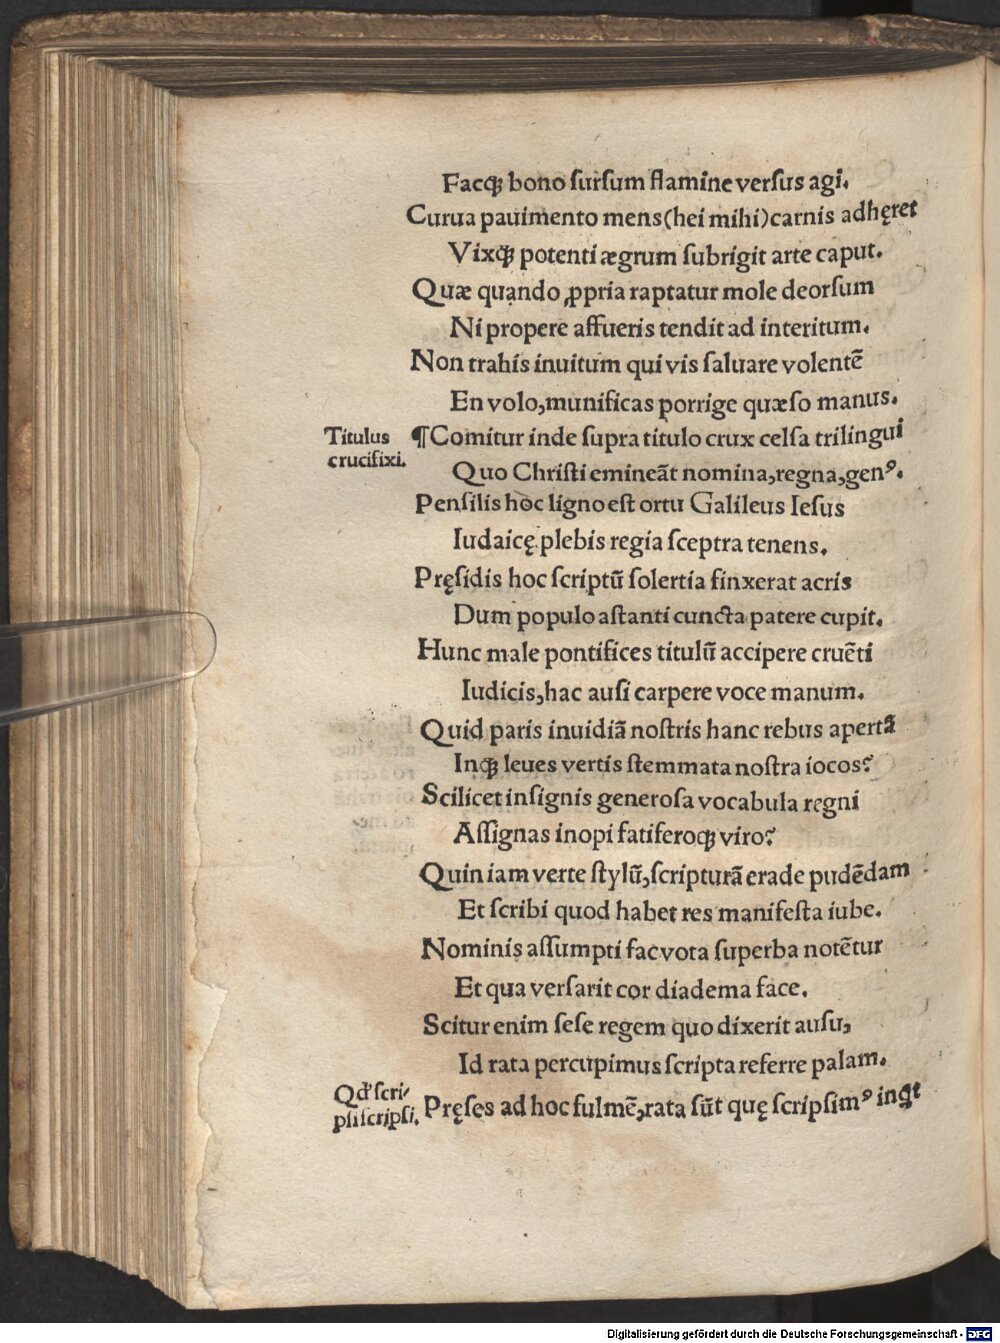 Facqꝫ bono ſurſum flamine verſus agi.
Curua pauimento mens(hei mihi)carnis adhęret
Vixqꝫ potenti ægrum ſubrigit arte caput.
Quæ quando ꝓpria raptatur mole deorſum
Ni propere affueris tendit ad interitum.
Non trahis inuitum qui vis ſaluare volentē
En volo,munificas porrige quæſo manus.
Titulus
crucifixi.
¶Comitur inde ſupra titulo crux celſa trilingui
Quo Chriſti emineāt nomina,regna,genꝰ.
Penſilis hoc ligno eſt ortu Galileus Ieſus
Iudaicę plebis regia ſceptra tenens.
Pręſidis hoc ſcriptū ſolertia finxerat acris
Dum populo aſtanti cuncta patere cupit.
Hunc male pontifices titulū accipere cruēti
Iudicis,hac auſi carpere voce manum.
Quid paris inuidiā noſtris hanc rebus apertā
Inqꝫ leues vertis ſtemmata noſtra iocos?
Scilicet inſignis generoſa vocabula regni
Aſſignas inopi fatiferoqꝫ viro?
Quin iam verte ſtylū,ſcripturā erade pudēdam
Et ſcribi quod habet res manifeſta iube.
Nominis aſſumpti fac vota ſuperba notētur
Et qua verſarit cor diadema face.
Scitur enim ſeſe regem quo dixerit auſu,
Id rata percupimus ſcripta referre palam.
Qd' ſcri/
pſi ſcripſi.
Pręſes ad hoc fulmē,rata sūt quę ſcripſimꝰ inqt
Digitalisierung gefördert durch die Deutsche Forschungsgemeinschaft - DFG